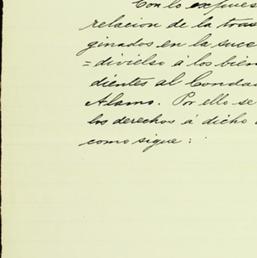 Con lo expues
relacion de la tras
ginados en la suce
=divielso á los bien
dientes al Conda
Alamo. Por ello se
los derechos á dicho
como sigue: